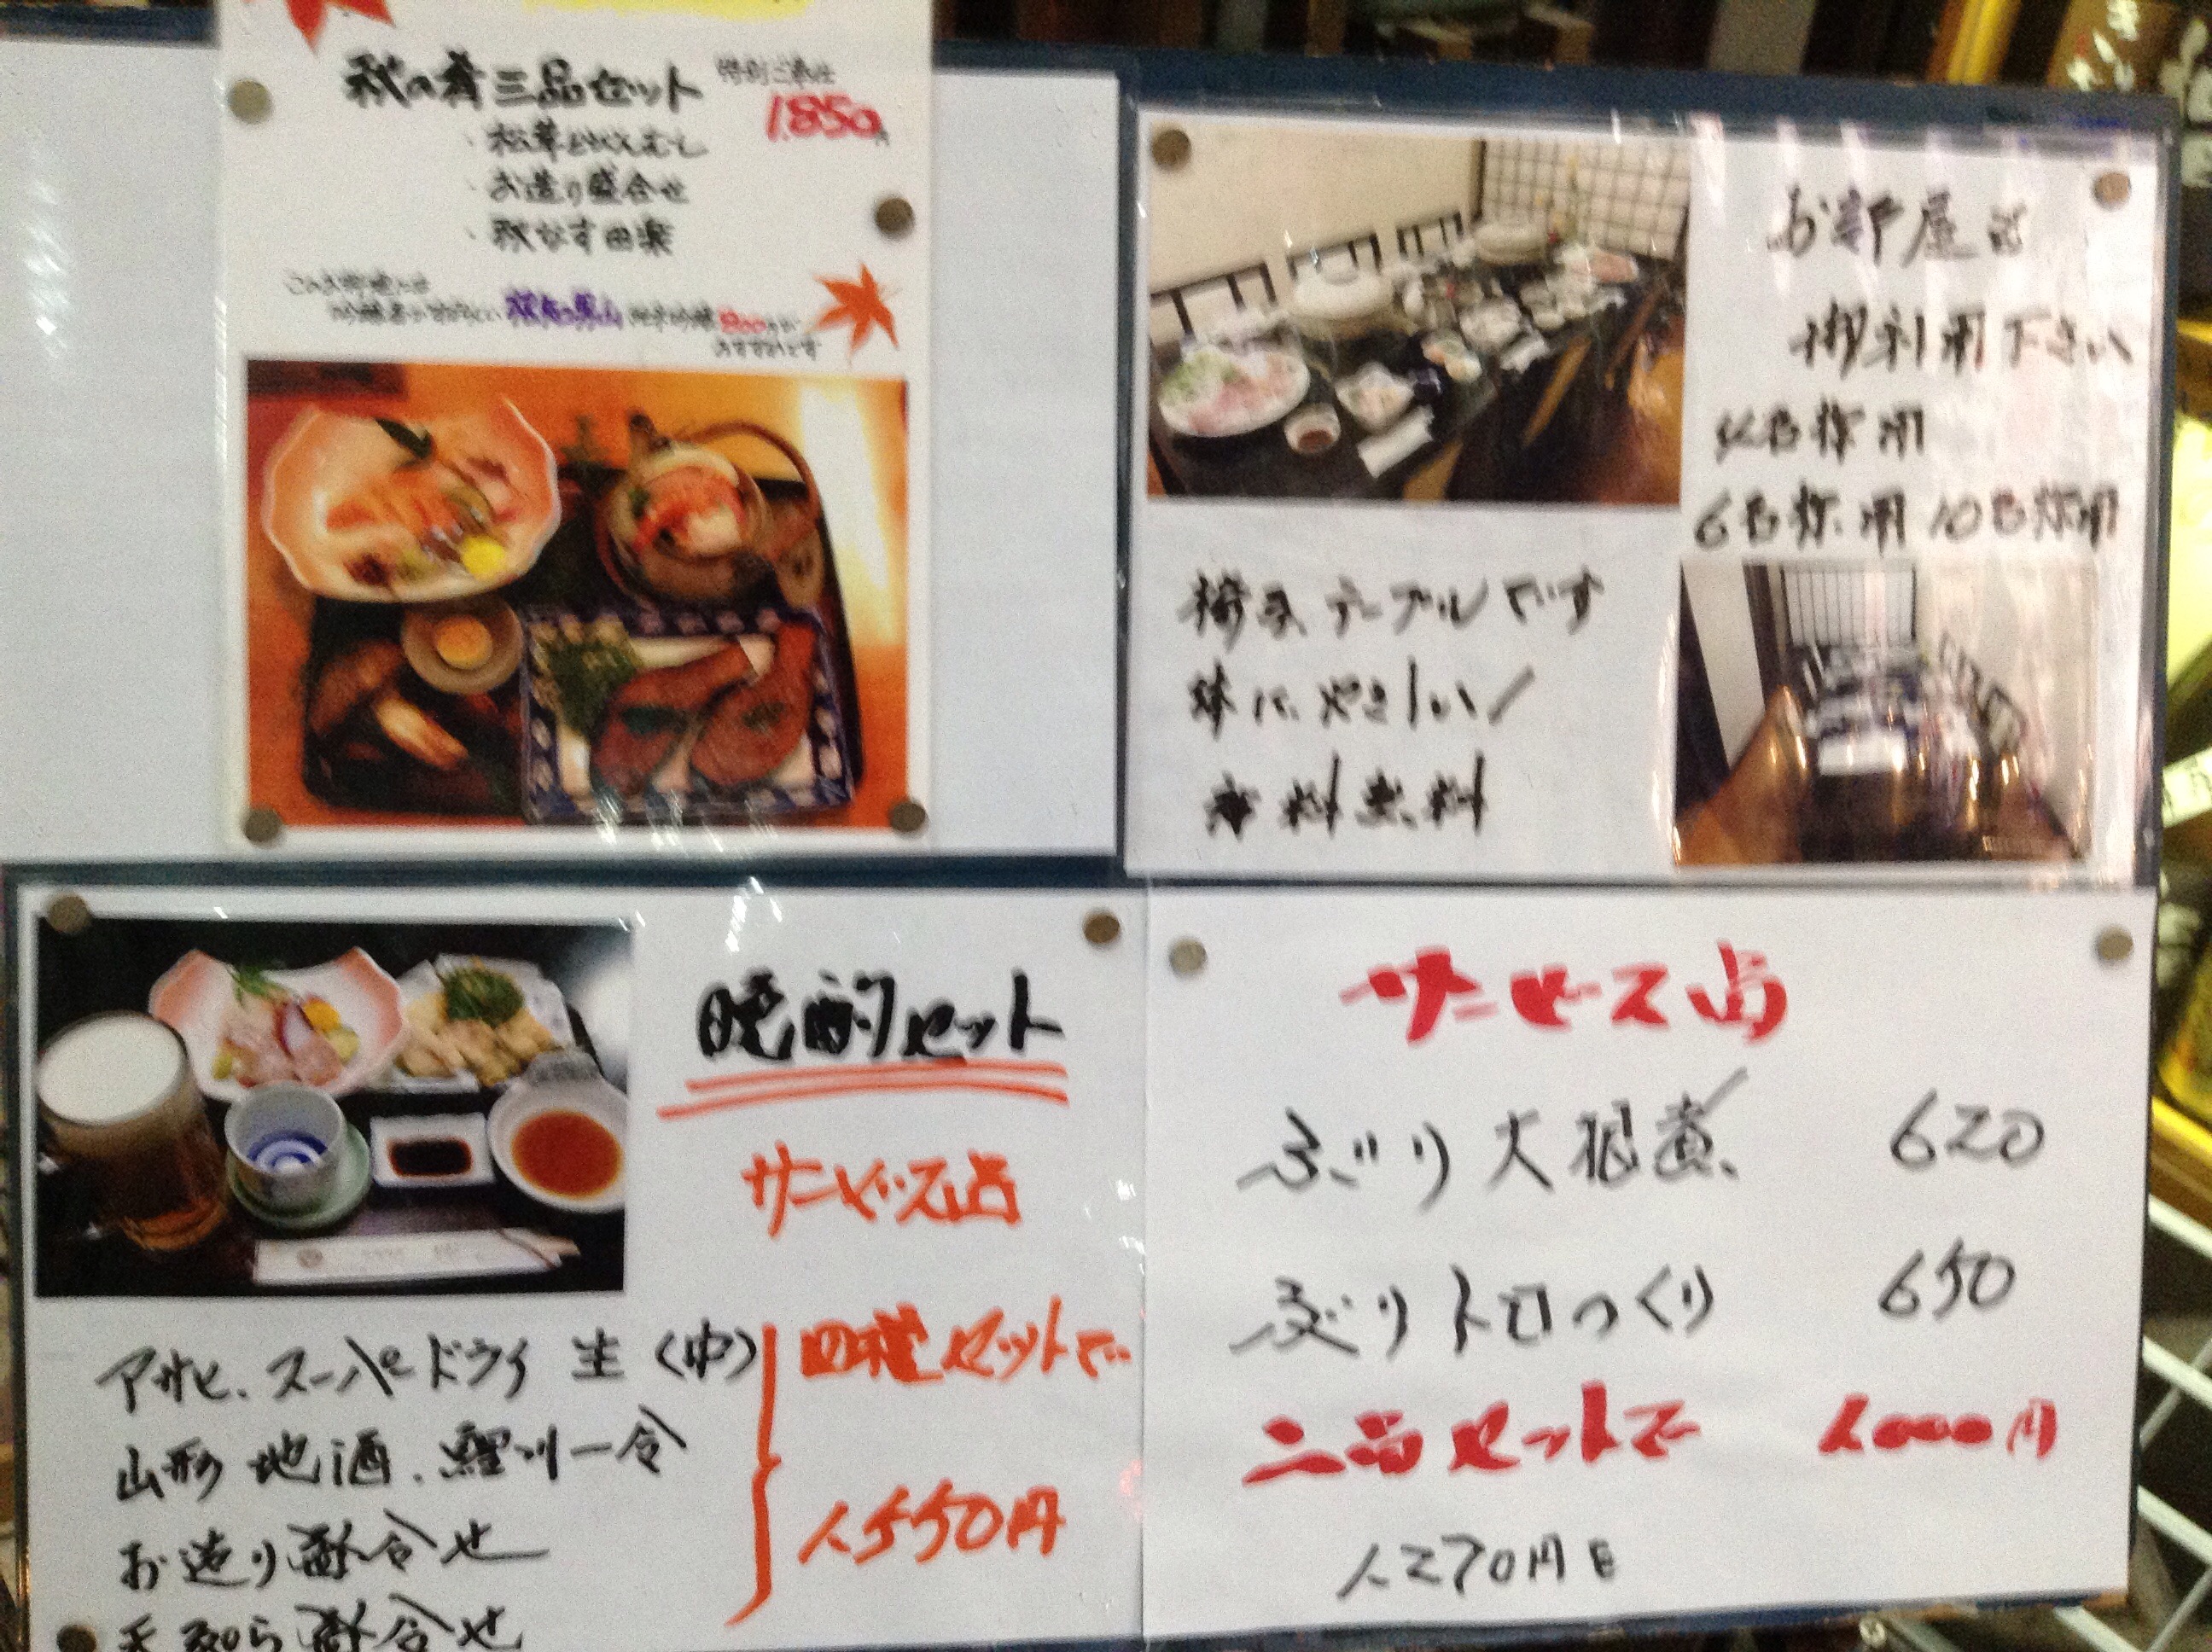 秋の肴三品セット
特別ご奉仕
1,850円
・松茸どびんむし
・お造り盛合せ
・秋なす田楽
おすすめです
お部屋も
御利用下さい
4名様用
6名様用 10名様用
椅子テーブルです
体にやさしい
席料無料
晩酌セット
サービス品
アサヒ、スーパードライ 生(中)
山形 地酒、鯉川一合
お造り酔合せ
天ぷら酔合せ
四種セットで
1,550円
サービス品
ぶり大根煮 620
ぶりトロつくり 650
二品セットで 1,000円
1,270円を